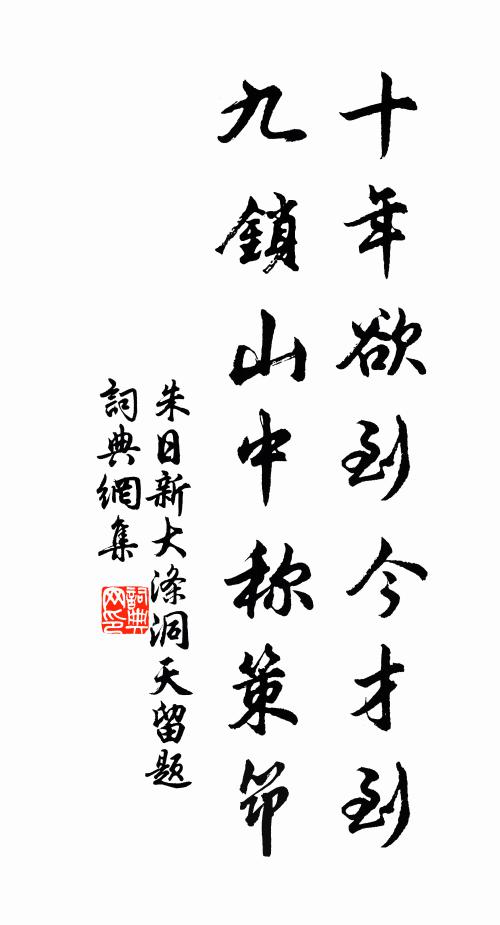 十年欲到今才到
九鎖山中称策筇
朱日新大涤洞天留题
詞典網集
詞典网印